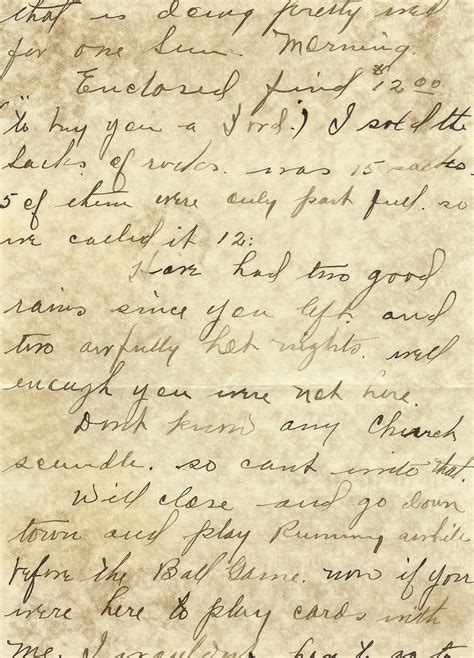 that is doing pretty well
for one Sun. Morning.
Enclosed find $12.00
"to buy you a Ford.) I sold the
sacks of rocks. was 15 sacks
5 of them were only part full. so
we called it 12:
Have had two good
rains since you left and
two awfully hot nights. well
enough you were not here.
Dont know any Church
scandle. so cant write that.
Will close and go down
town and play Rummy awhile
before the Ball Game. now if you
were here to play cards with
me. I wouldn't have to go to